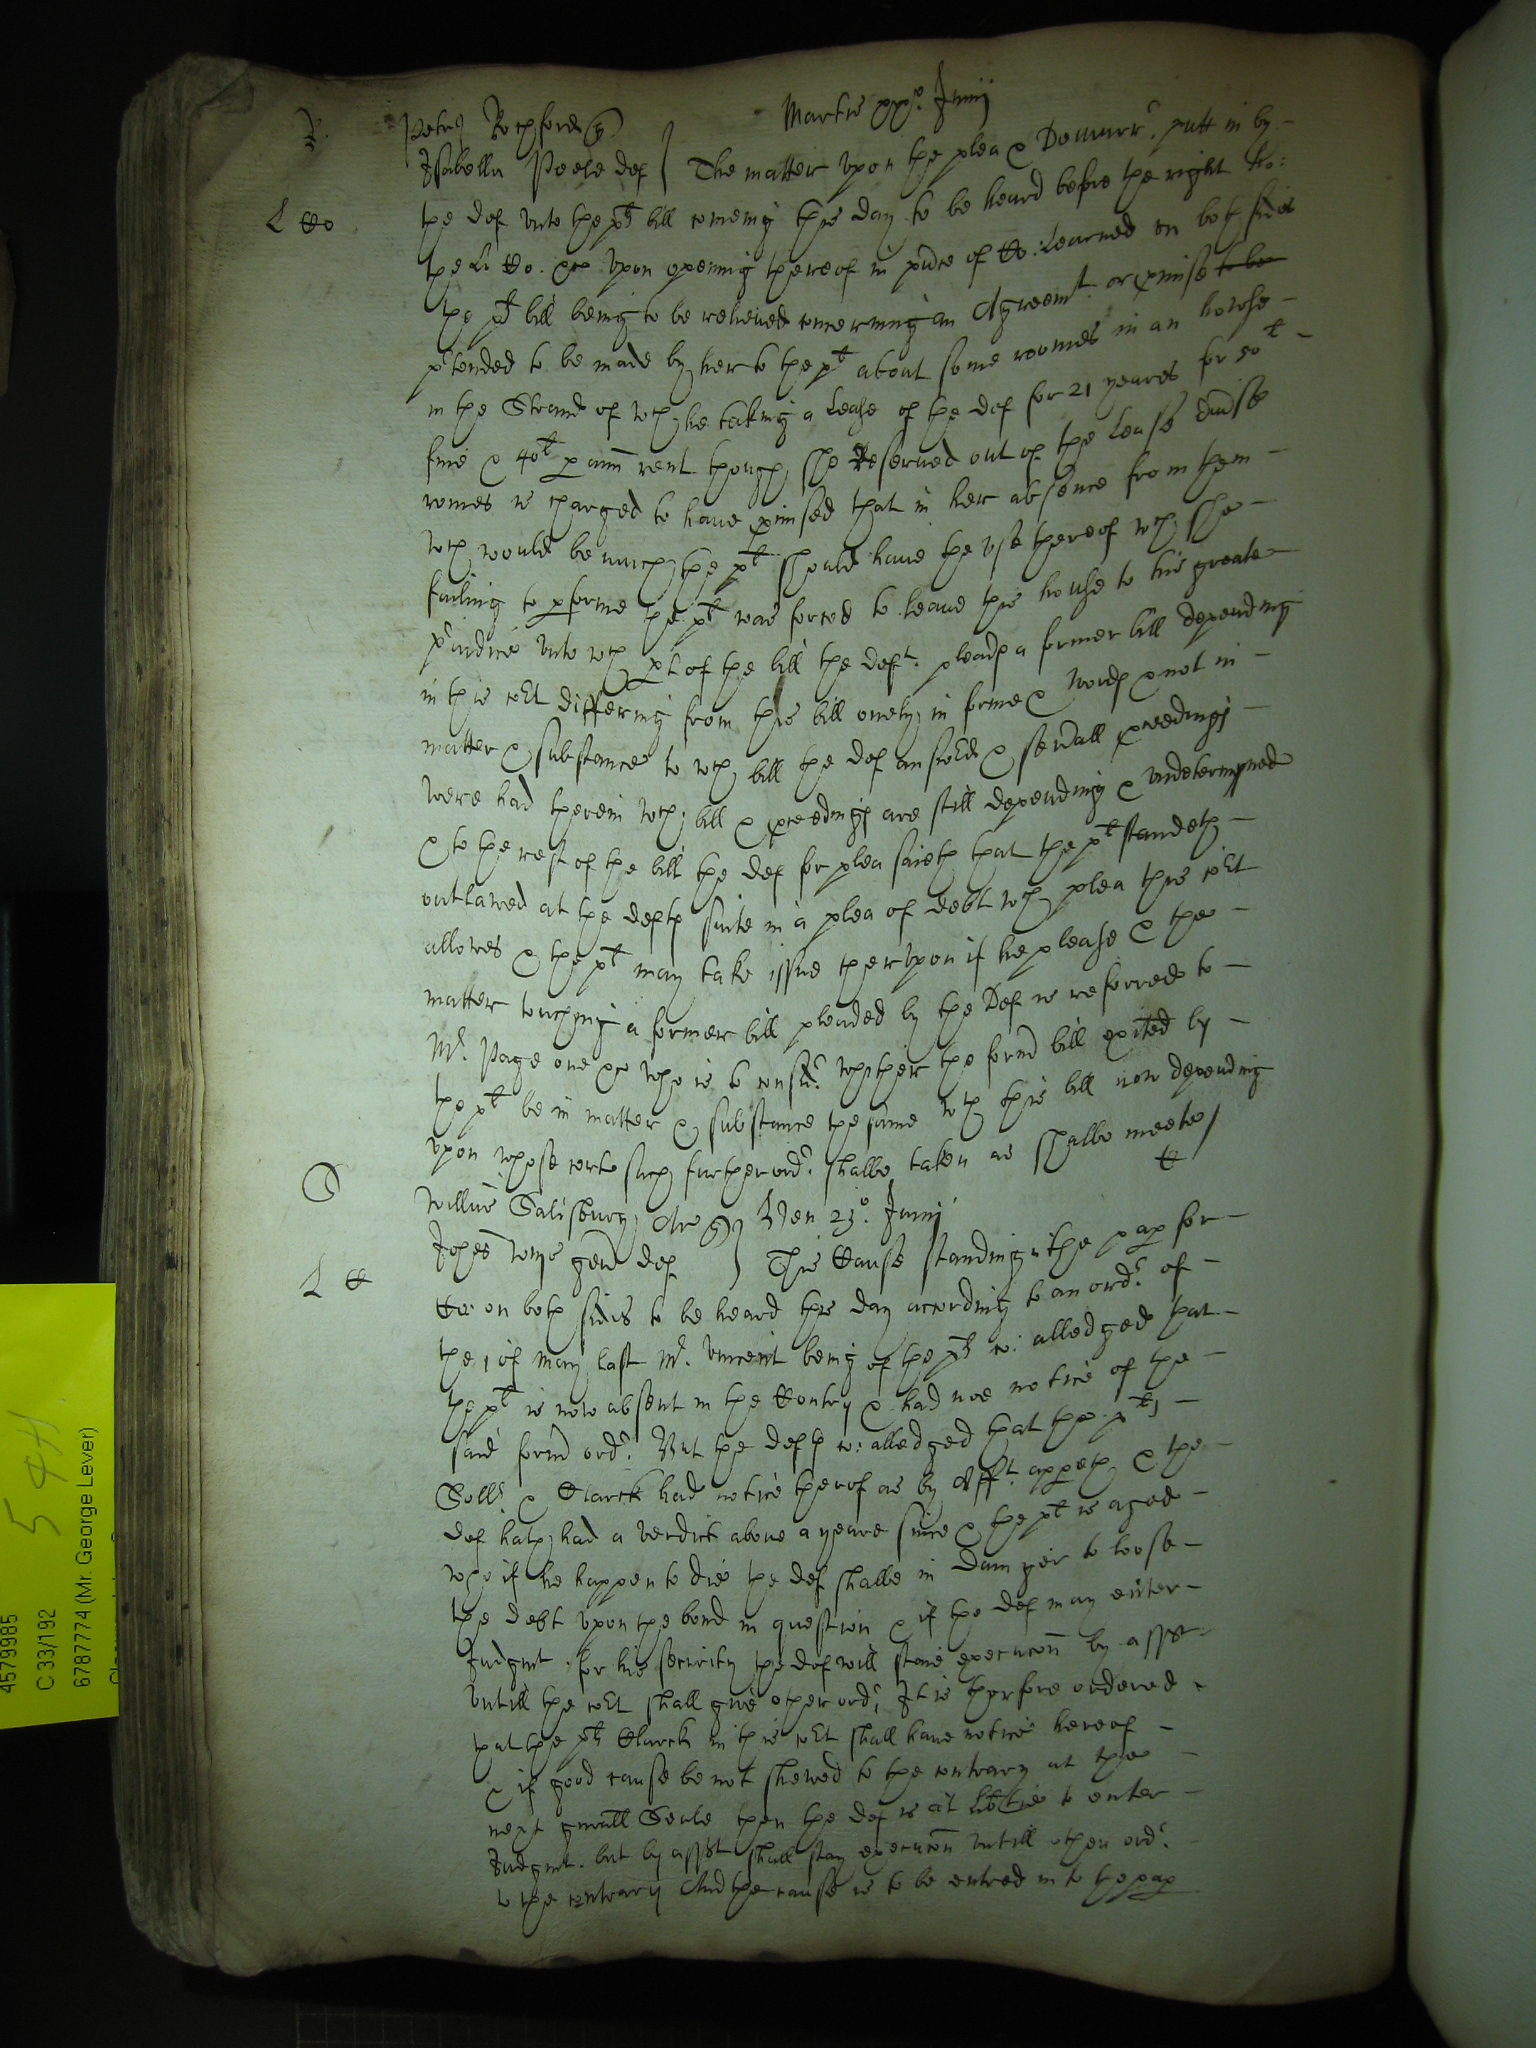 Martis xxo. Junij
Petrus Rochford q
Isabella Poole def } The matter vpon the plea & Demurr. putt in by
L Co
the def vnto the plts bill comeing this day to be heard before the right ho:
the L Co. &c vpon opening thereof in pnce of Co: Learned on both sides
the plts bill being to be releived concerning an Agreemt. or pmise to be
ptended to be made by her to the plt about some roomes in an howse
in the Strand of wch he taking a Lease of the def for 21 yeares for 50l
fine & 40l p ann rent though she Reserued out of the lease those
romes is charged to have pmised that in her absence from them
wch would be much the plt should have the vse thereof wch she
failing to pforme the plt was forced to leave the house to his greate
piudice vnto wch pt of the bill the deft. pleads a former bill depending
in this cort differing from this bill onely in forme & words & not in
matter & substance to wch bill the def answered & seuall pceedings
were had therein wch bill & pceedings are still depending & vndetermyned
& to the rest of the bill the def for plea saieth that the plt standeth
outlawed at the defts suite in a plea of debt wch plea this cort
allowes & the plt may take issue thervpon if he please & the
matter touching a former bill pleaded by the Def is referred to
Mr. Page one &c who is to consider whether the form bill exited by
the plt be in matter & substance the same wth this bill now depending
vpon whose cert such further ord. shalbe taken as shalbe meete /
Willus Salisbury Ar q } Ven 23o. Junij
Johes wms gen def } This Cause standing in the pap for
L C
Co: on both sides to be heard this day according to an ord. of
the 1 of may last Mr. Vincent being of the plts co: alledged that
the plt is now absent in the Contry & had noe notice of the
said form ord. But the defts co: alledged that the plts
Sollr & Clarck had notice therof as by Afft. appeth & the
def hath had a verdict above a yeare since & the plt is aged
who if he happen to die the def shalbe in danger to loose
the debt vpon the bond in question & if the def may enter
Judgmt. for his security the def will staie execucon by asst
vntill the cort shall give other ord. It is therfore ordered
that the plts Clarck in this cort shall have notice hereof
& if good cause be not shewed to the contrary at the
next gnall Seale then the def is at libtie to enter
Judgmt. but by asst shall stay execucon vntill other ord.
to the contrary And the cause is to be entred in to the pap
4579985
C 33/192
6787774 (Mr. George Lever)
544